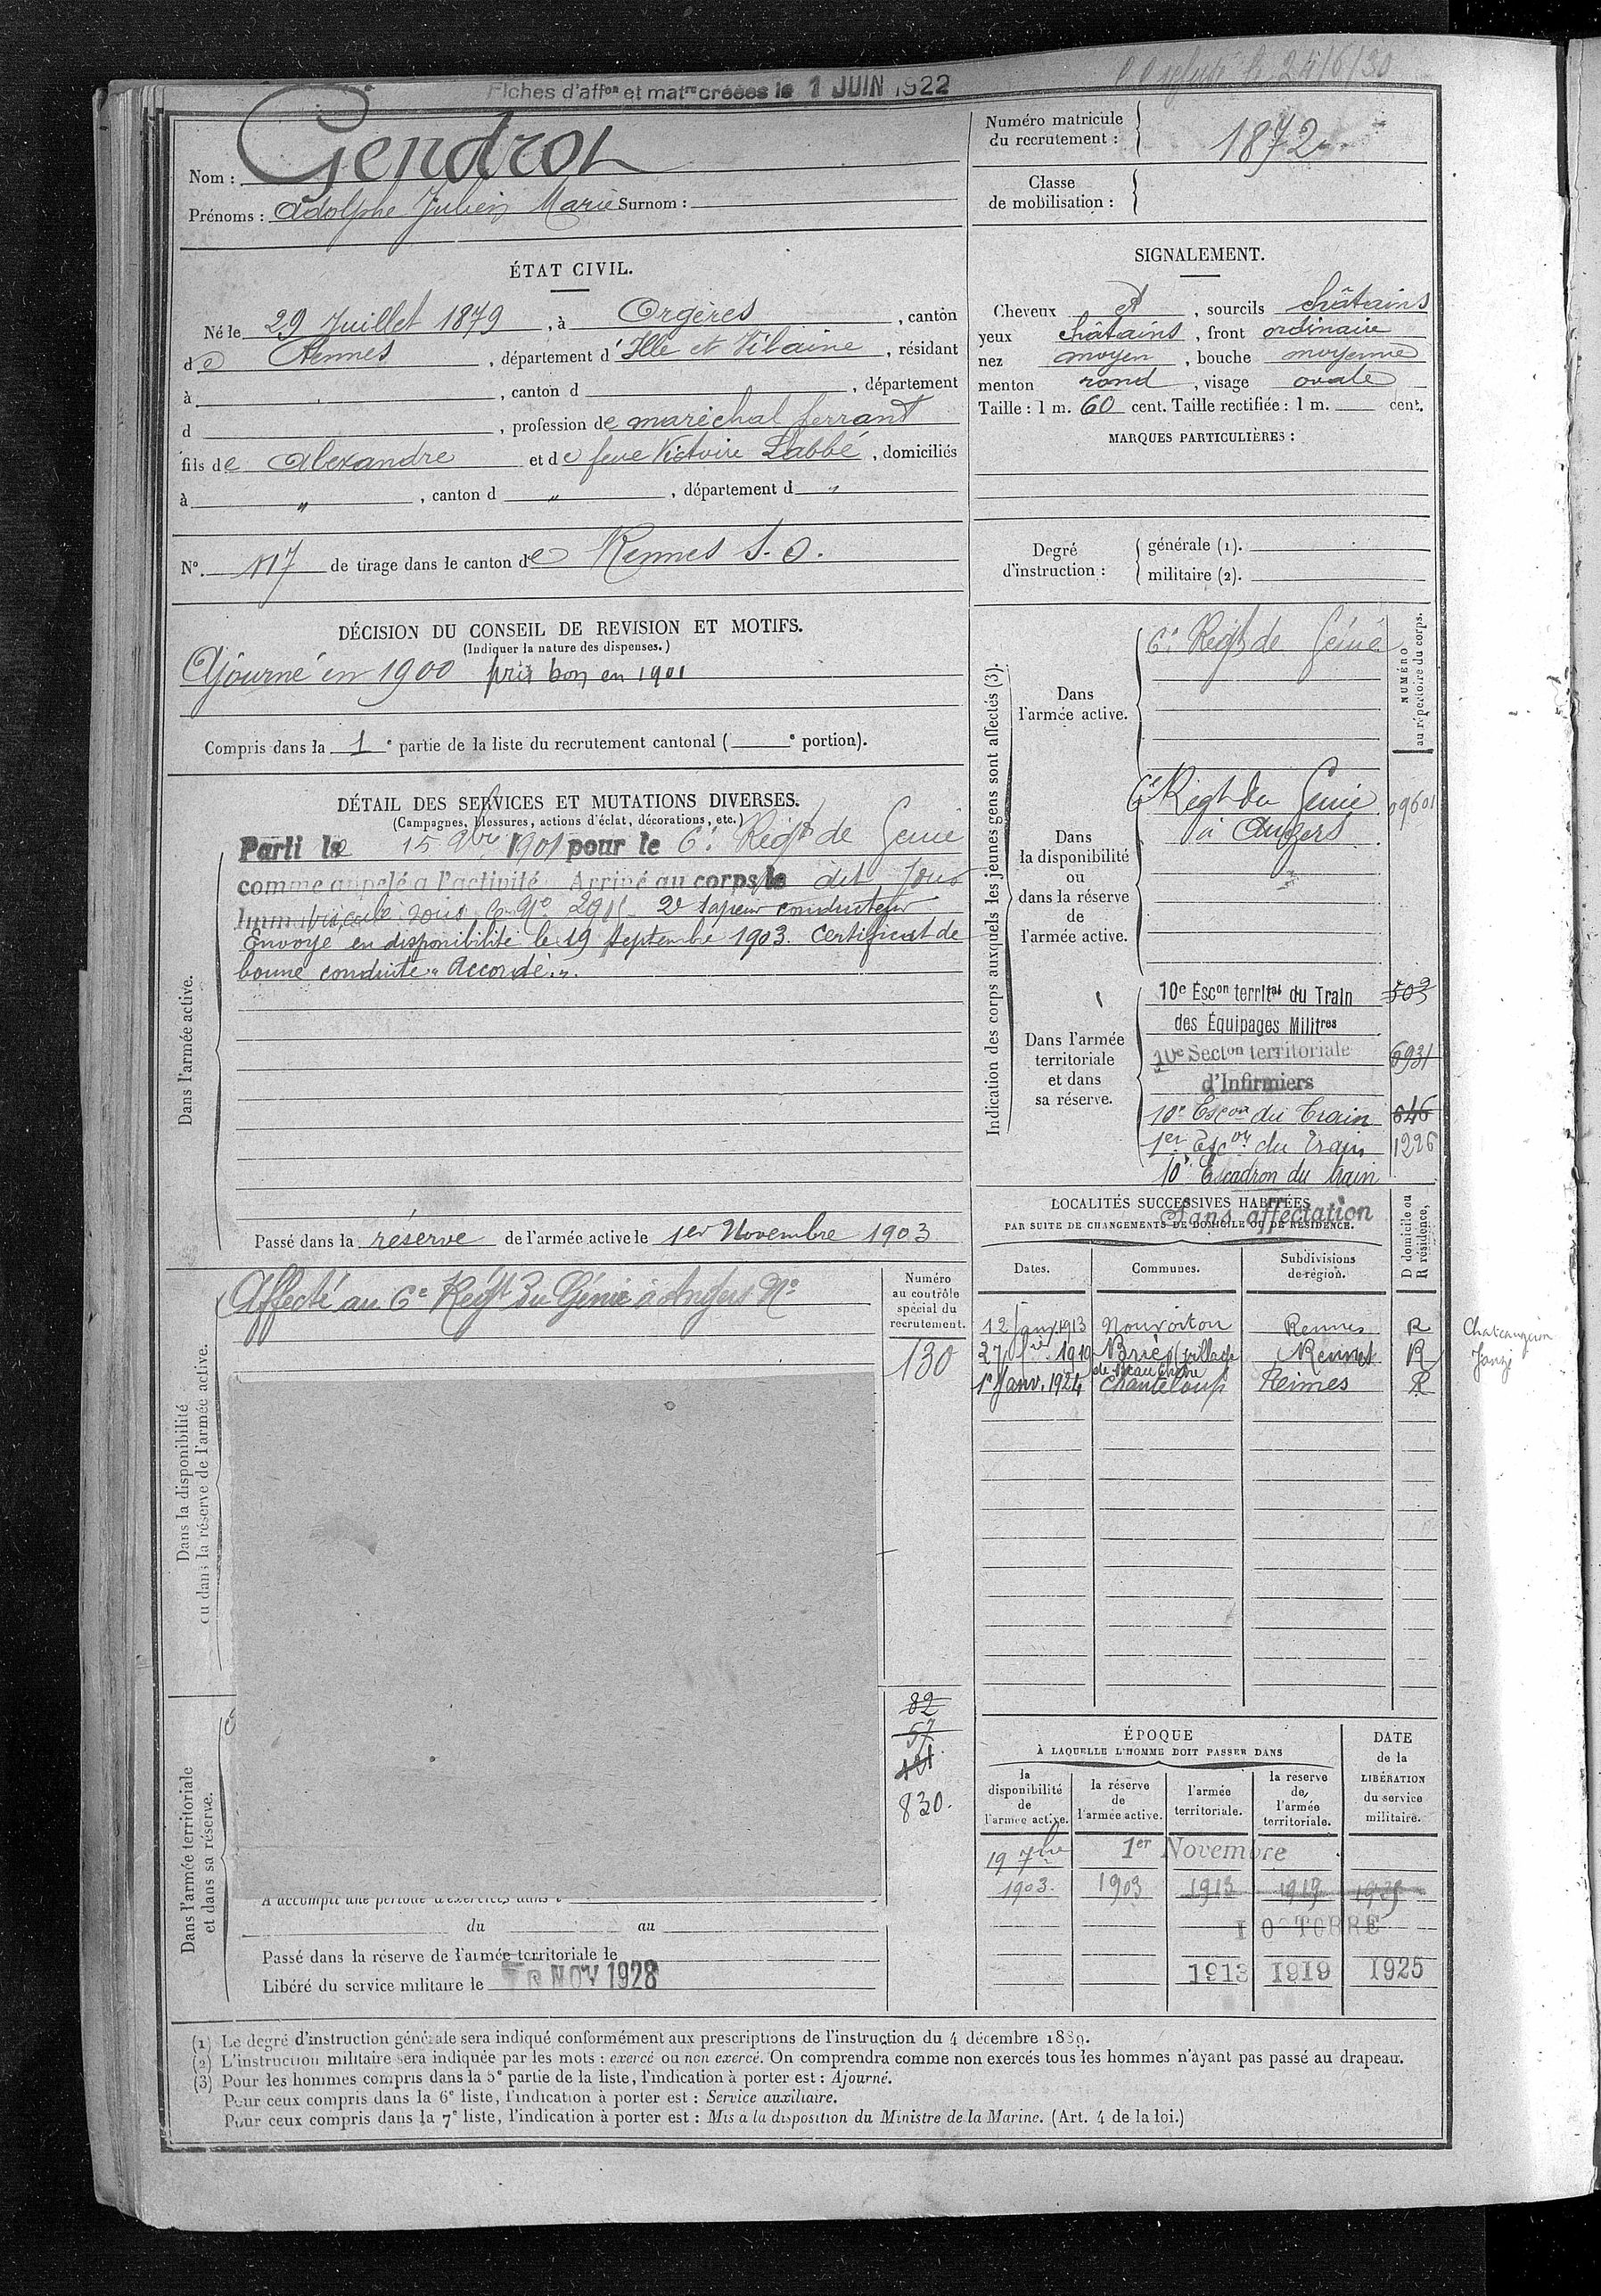 Fiches d'affon et matre créées le 1 JUIN 1922
24/6/30
Nom : Gendrot
Prénoms : Adolphe Julien Marie Surnom :
Numéro matricule du recrutement : 1872
Classe de mobilisation :
ÉTAT CIVIL.
Né le 29 Juillet 1879, à Orgères, canton
de Rennes, département d'Ille et Vilaine, résidant
à , canton d , département
d , profession de maréchal ferrant
fils de Alexandre et de feue Victoire Labbé, domiciliés
à " , canton d " , département d "
No. 117 de tirage dans le canton de Rennes S. O.
DÉCISION DU CONSEIL DE REVISION ET MOTIFS.
(Indiquer la nature des dispenses.)
Ajourné en 1900 pris bon en 1901
Compris dans la 1e partie de la liste du recrutement cantonal ( e portion).
DÉTAIL DES SERVICES ET MUTATIONS DIVERSES.
(Campagnes, blessures, actions d'éclat, décorations, etc.)
Dans l'armée active.
Parti le 15 9bre 1901 pour le 6e Regt de Génie
comme appelé à l'activité Arrivé au corps le dit jour
Immatriculé sous le No 2e sapeur conducteur
Envoyé en disponibilité le 19 septembre 1903. Certificat de
bonne conduite "Accordé".
Passé dans la réserve de l'armée active le 1er Novembre 1903
Dans la disponibilité
ou dans la réserve de l'armée active.
Affecté au 6e Régt du Génie à Angers No
Numéro
au contrôle
spécial du
recrutement.
130
Dans l'armée territoriale
et dans sa réserve.
82
57
830.
A accompli une période d'exercices dans l
du au
Passé dans la réserve de l'armée territoriale le
Libéré du service militaire le NOV 1928
SIGNALEMENT.
Cheveux et , sourcils châtains
yeux châtains , front ordinaire
nez moyen , bouche moyenne
menton rond , visage ovale
Taille : 1 m. 60 cent. Taille rectifiée : 1 m. cent.
MARQUES PARTICULIÈRES :
Degré d'instruction : générale (1).
militaire (2).
Indication des corps auxquels les jeunes gens sont affectés (3).
NUMÉRO
au répertoire du corps.
Dans
l'armée active.
6e Regt de Génie
Dans
la disponibilité
ou
dans la réserve
de
l'armée active.
6e Regt du Génie
à Angers
09601
Dans l'armée
territoriale
et dans
sa réserve.
10e Escon territal du Train 503
des Équipages Militres
10e Secton territoriale 6931
d'Infirmiers
10e Escon du Train 846
1er Escon du Train 1226
10e Escadron du train
Sans affectation
LOCALITÉS SUCCESSIVES HABITÉES
PAR SUITE DE CHANGEMENTS DE DOMICILE OU DE RÉSIDENCE.
Dates. Communes. Subdivisions de région. D domicile ou R résidence.
12 Janv 1913 Nouvoitou Rennes R
27 1919 Brie (village Rennes R
1er Janv. 1924 Chanteloup Rennes R
Janzé
ÉPOQUE
À LAQUELLE L'HOMME DOIT PASSER DANS
DATE
de la
LIBÉRATION
du service
militaire.
la disponibilité de l'armée active.
la réserve de l'armée active.
l'armée territoriale.
la réserve de l'armée territoriale.
19 7bre 1er Novembre
1903. 1903 1913 1919
1 OCTOBRE
1913 1919 1925
(1) Le degré d'instruction générale sera indiqué conformément aux prescriptions de l'instruction du 4 décembre 1889.
(2) L'instruction militaire sera indiquée par les mots : exercé ou non exercé. On comprendra comme non exercés tous les hommes n'ayant pas passé au drapeau.
(3) Pour les hommes compris dans la 5e partie de la liste, l'indication à porter est : Ajourné.
Pour ceux compris dans la 6e liste, l'indication à porter est : Service auxiliaire.
Pour ceux compris dans la 7e liste, l'indication à porter est : Mis à la disposition du Ministre de la Marine. (Art. 4 de la loi.)